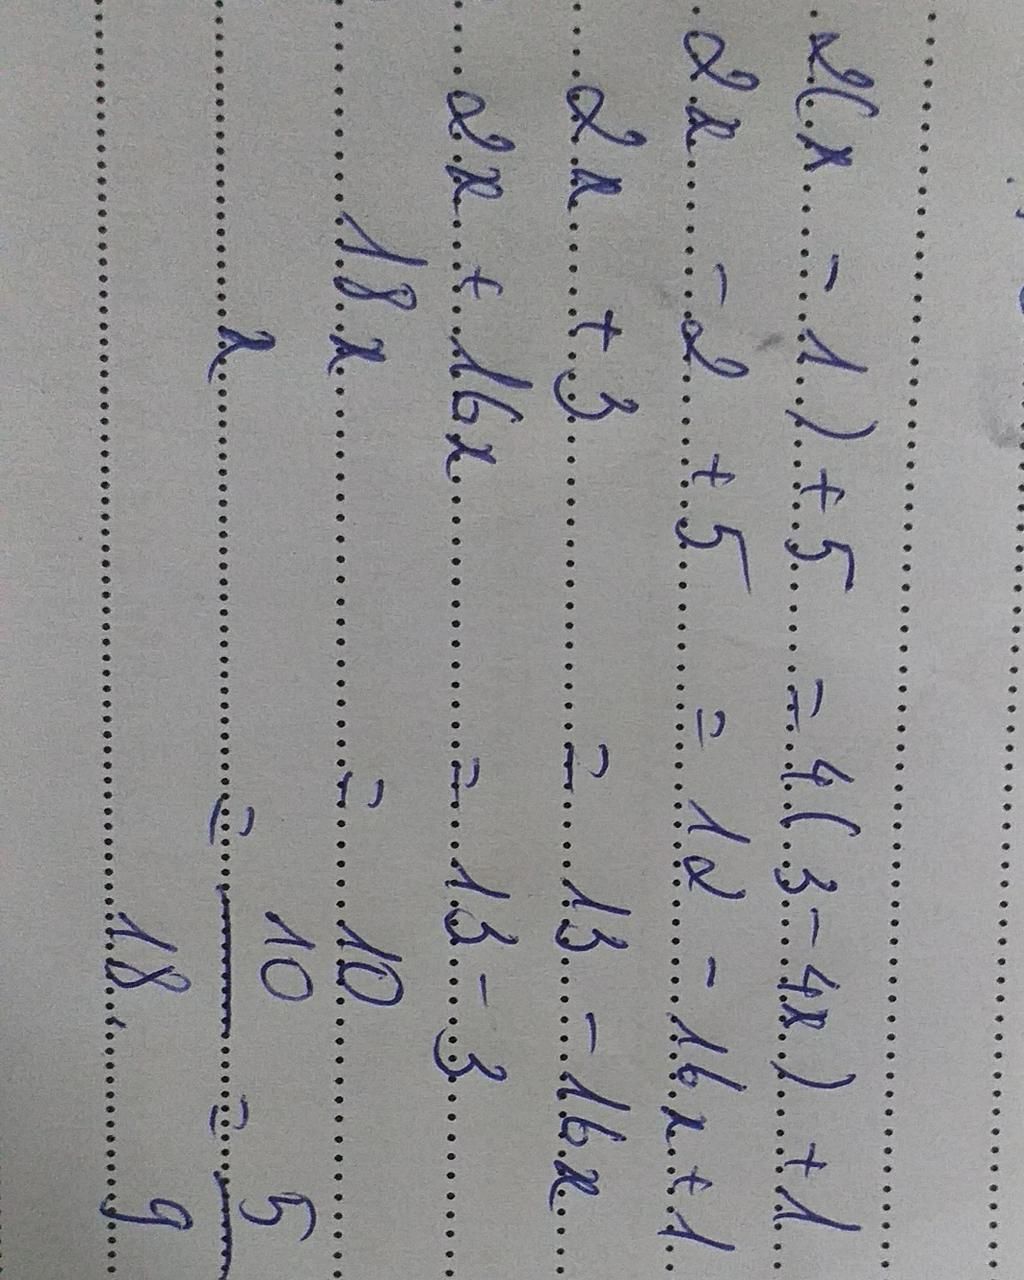 2(x - 1) + 5 = 4(3 - 4x) + 1
2x - 2 + 5 = 12 - 16x + 1
2x + 3 = 13 - 16x
2x + 16x = 13 - 3
18x = 10
x = 10/18 = 5/9